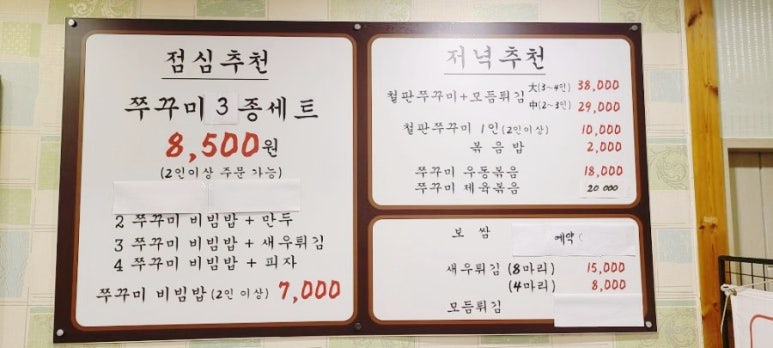 점심추천
쭈꾸미 3종세트
8,500원
(2인이상 주문 가능)
2 쭈꾸미 비빔밥 + 만두
3 쭈꾸미 비빔밥 + 새우튀김
4 쭈꾸미 비빔밥 + 피자
쭈꾸미 비빔밥(2인 이상) 7,000
저녁추천
철판쭈꾸미+모듬튀김 大(3~4인) 38,000
中(2~3인) 29,000
철판쭈꾸미 1인(2인이상) 10,000
볶음밥 2,000
쭈꾸미 우동볶음 18,000
쭈꾸미 제육볶음 20 000
보쌈 예약(
새우튀김 (8마리) 15,000
(4마리) 8,000
모듬튀김